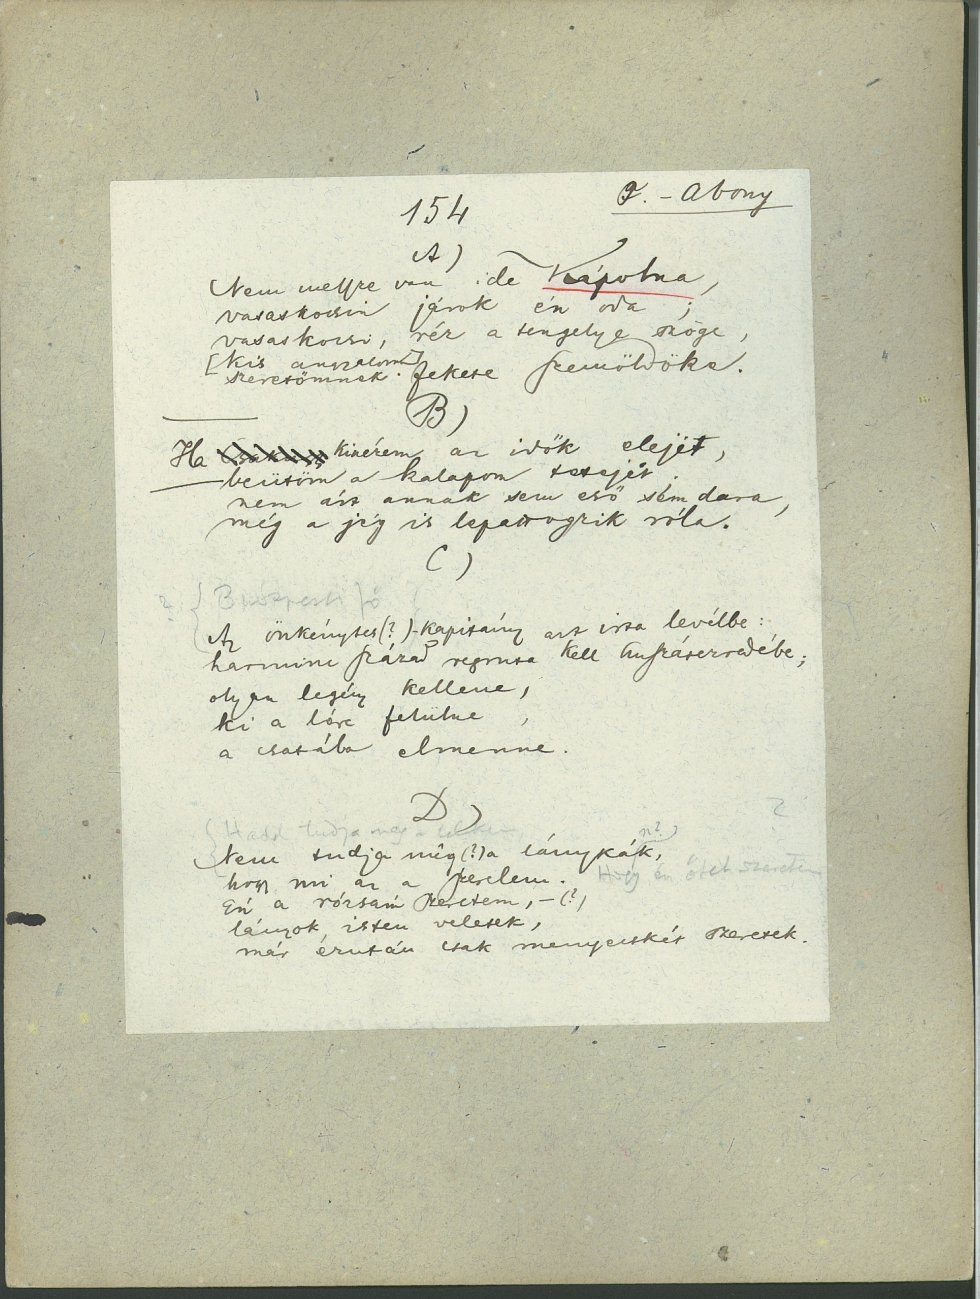 154
T. - Abony
A)
Nem messze van ide Kápolna,
vasaskocsin járok én oda;
vasaskocsi, réz a tengelye szöge,
[kis angyalom]
szeretömnek fekete szemöldöke.
B)
Ha kinézem az idők elejét,
beütöm a kalapom tetejét.
nem árt annak sem eső sem dara,
még a jég is lepattogzik róla.
C)
? {
Az önkénytes(?)-kapitány azt irta levélbe:
harminc század regruta kell huszárezredébe;
olyan legény kellene,
ki a lóra felülne,
a csatába elmenne.
D)
Hadd tudja meg a
Nem tudja még(?) a lánykák, n?)
hogy mi az a szerelem. Hogy én őtet szeretem
Én a rózsám szeretem, -(?)
lányok, isten veletek,
már ezután csak menyecskét szeretek.